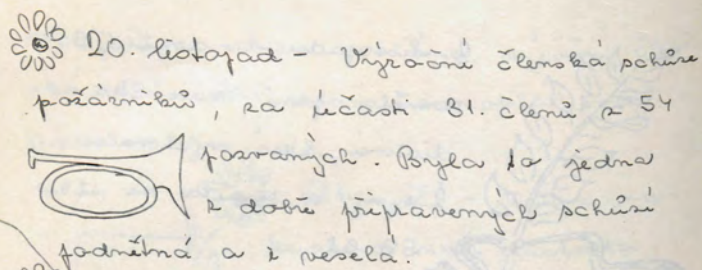 20. listopad - Výroční členská schůze
požárníků, za účasti 31. členů z 54
pozvaných. Byla to jedna
z dobře připravených schůzí
podnětná a i veselá.